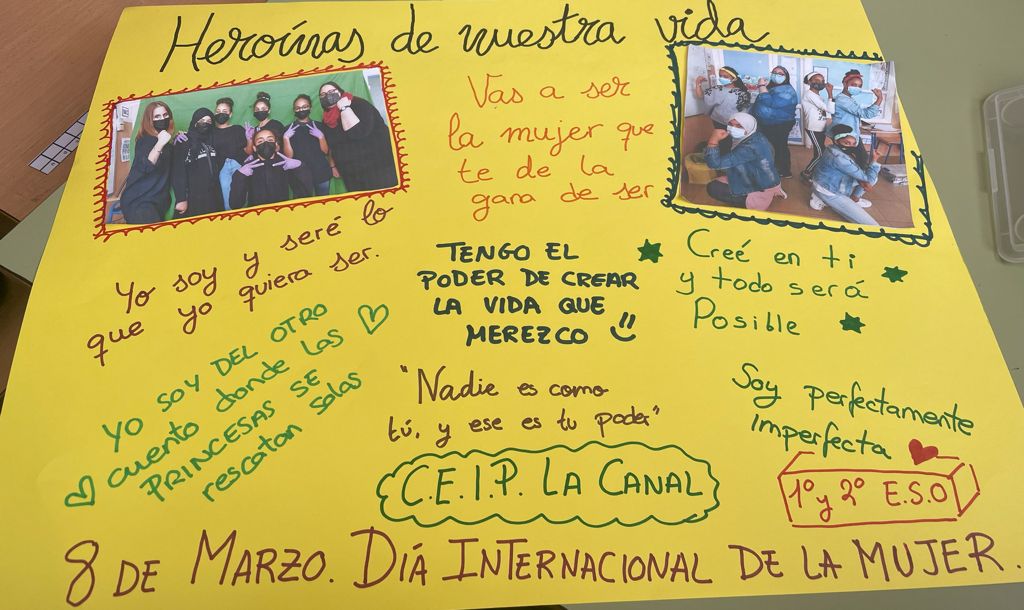 Heroínas de nuestra vida
Vas a ser
la mujer que
te de la
gana de ser
Yo soy y seré lo
que yo quiera ser.
TENGO EL
PODER DE CREAR
LA VIDA QUE
MEREZCO
Creé en ti
y todo será
Posible
YO SOY DEL OTRO
cuento donde las
PRINCESAS SE
rescatan solas
"Nadie es como
tú, y ese es tu poder"
Soy perfectamente
imperfecta
C.E.I.P. LA CANAL
1º y 2º E.S.O
8 DE MARZO. DIÁ INTERNACIONAL DE LA MUJER.